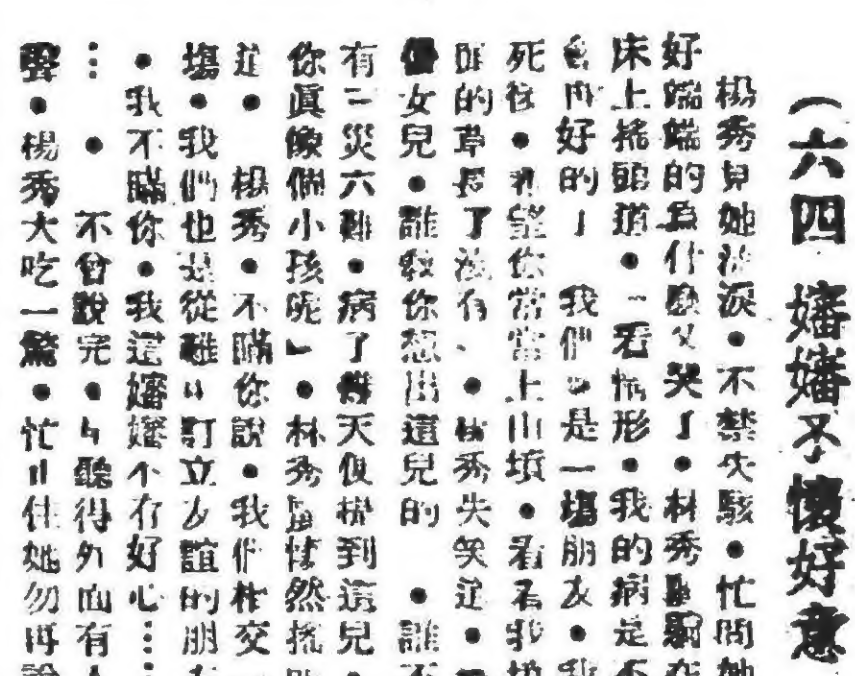 （六四 嬸嬸不懷好意
楊秀見她流淚●不禁失駭●忙問她
好端端的爲什麼又哭了』林秀
床上搖頭道●看情形●我的病是不
會再好的』我們也是一塲朋友●我
死後●希望你常常上山墳●看看我
的草長了沒有●楊秀失笑道●
女兒●誰教你想出這兒的●誰不
有三災六難●病了幾天便想到這兒●
你真像個小孩呢』●林秀悽然搖
道●楊秀●不瞞你說●我們相交一
塲●我們也是從離訂立友誼的朋友
●我不瞞你●我這嬸嬸不存好心⋮
⋮●不曾說完●聽得外面有人
聲●楊秀大吃一驚●忙止住她勿再說